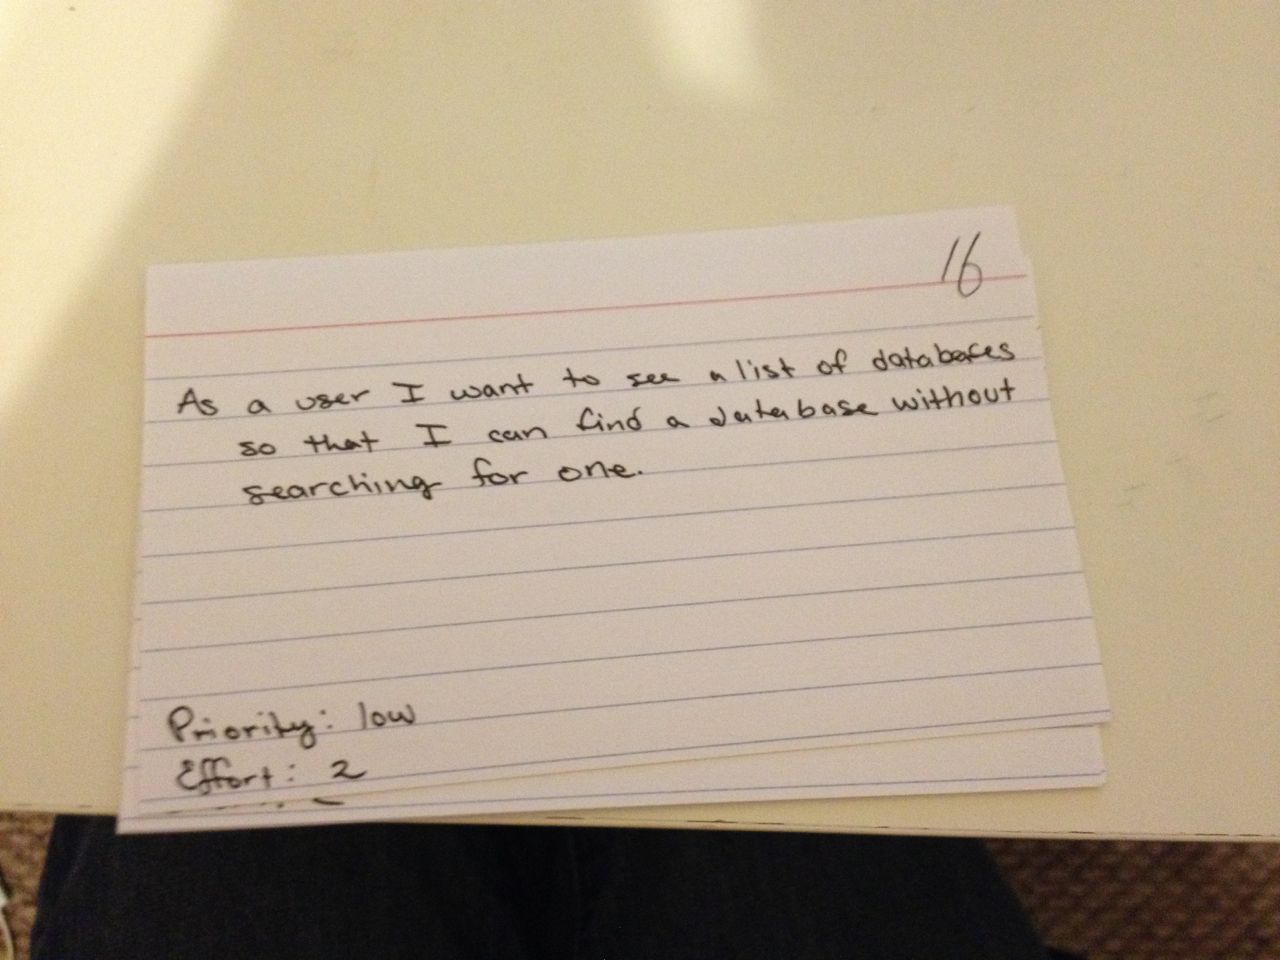 16
As a user I want to see a list of databases
so that I can find a database without
searching for one.
Priority: low
Effort: 2